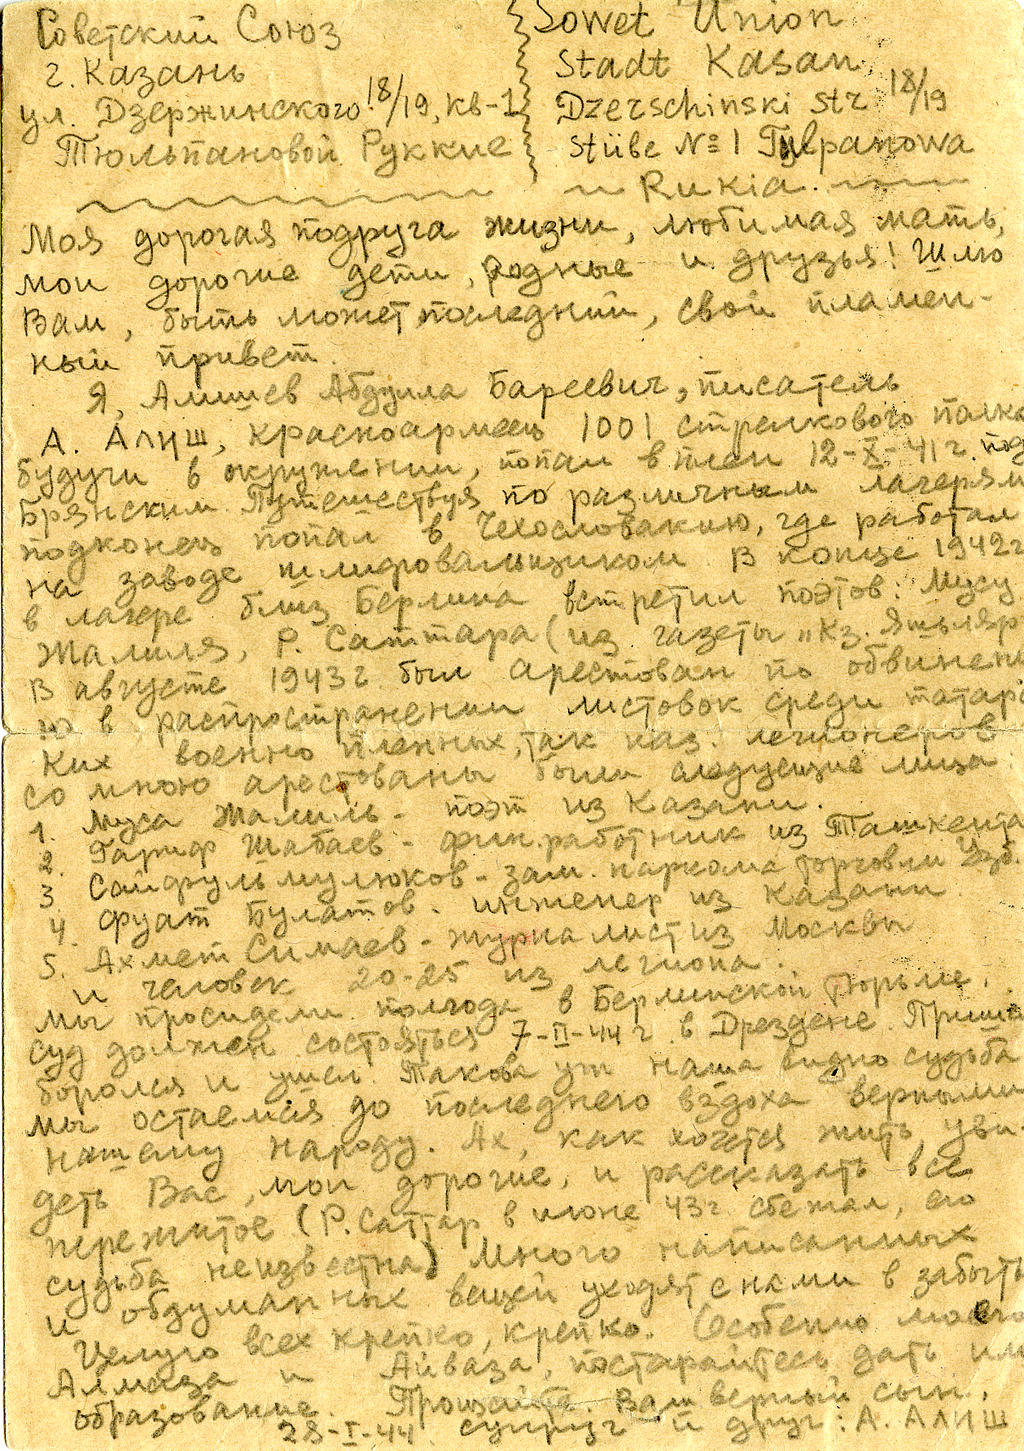 Советский Союз
г. Казань
ул. Дзержинского 18/19, кв-1
Тюльпановой Руккие
Sowet Union
Stadt Kasan
Dzerschinski str 18/19
Stübe № 1 Tulpanowa
Rukia.
Моя дорогая подруга жизни, любимая мать,
мои дорогие дети, родные и друзья! Шлю
Вам, быть может последний, свой пламен-
ный привет.
Я, Алишев Абдулла Бареевич, писатель
А. Алиш, красноармеец 1001 стрелкового полка
будучи в окружении, попал в плен 12-X-41 г. под
Брянским. Путешествуя по различным лагерям
подконец попал в Чехословакию, где работал
на заводе шлифовальщиком В конце 1942 г
в лагере близ Берлина встретил поэтов: Мусу
Жалиля, Р. Саттара (из газеты „Кз. Яшьляр
В августе 1943 г. был арестован по обвинени
ю в распространении листовок среди татарс
ких военно пленных, так наз. легионеров
со мною арестованы были следующие лица:
1. Муса Жалиль - поэт из Казани.
2. Гариф Шабаев - фин. работник из Ташкента
3. Сайфульмулюков - зам. наркома торговли Узб.
4. Фуат Булатов - инженер из Казани
5. Ахмет Симаев - журналист из Москвы
и человек 20-25 из легиона.
Мы просидели полгода в Берлинской тюрьме.
Суд должен состояться 7-II-44 г. в Дрездене.
боролся и ушел. Такова уж наша видно судьба
мы остаемся до последнего вздоха верными
нашему народу. Ах, как хочется жить, уви-
деть Вас, мои дорогие, и рассказать все
пережитое (Р. Саттар в июне 43 г. сбежал, его
судьба неизвестна) Много написанных
и обдуманных вещей уходят с нами в забыть
Целую всех крепко, крепко. Особенно моего
Алмаза и Айваза, постарайтесь дать им
образование. Прощайте. Ваш верный сын,
28-I-44. супруг и друг: А. Алиш